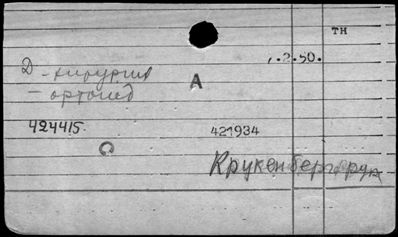 тн
7.2.50.
Д - хирургия
- ортопед
А
424415
421934
С
Крукенберг рук